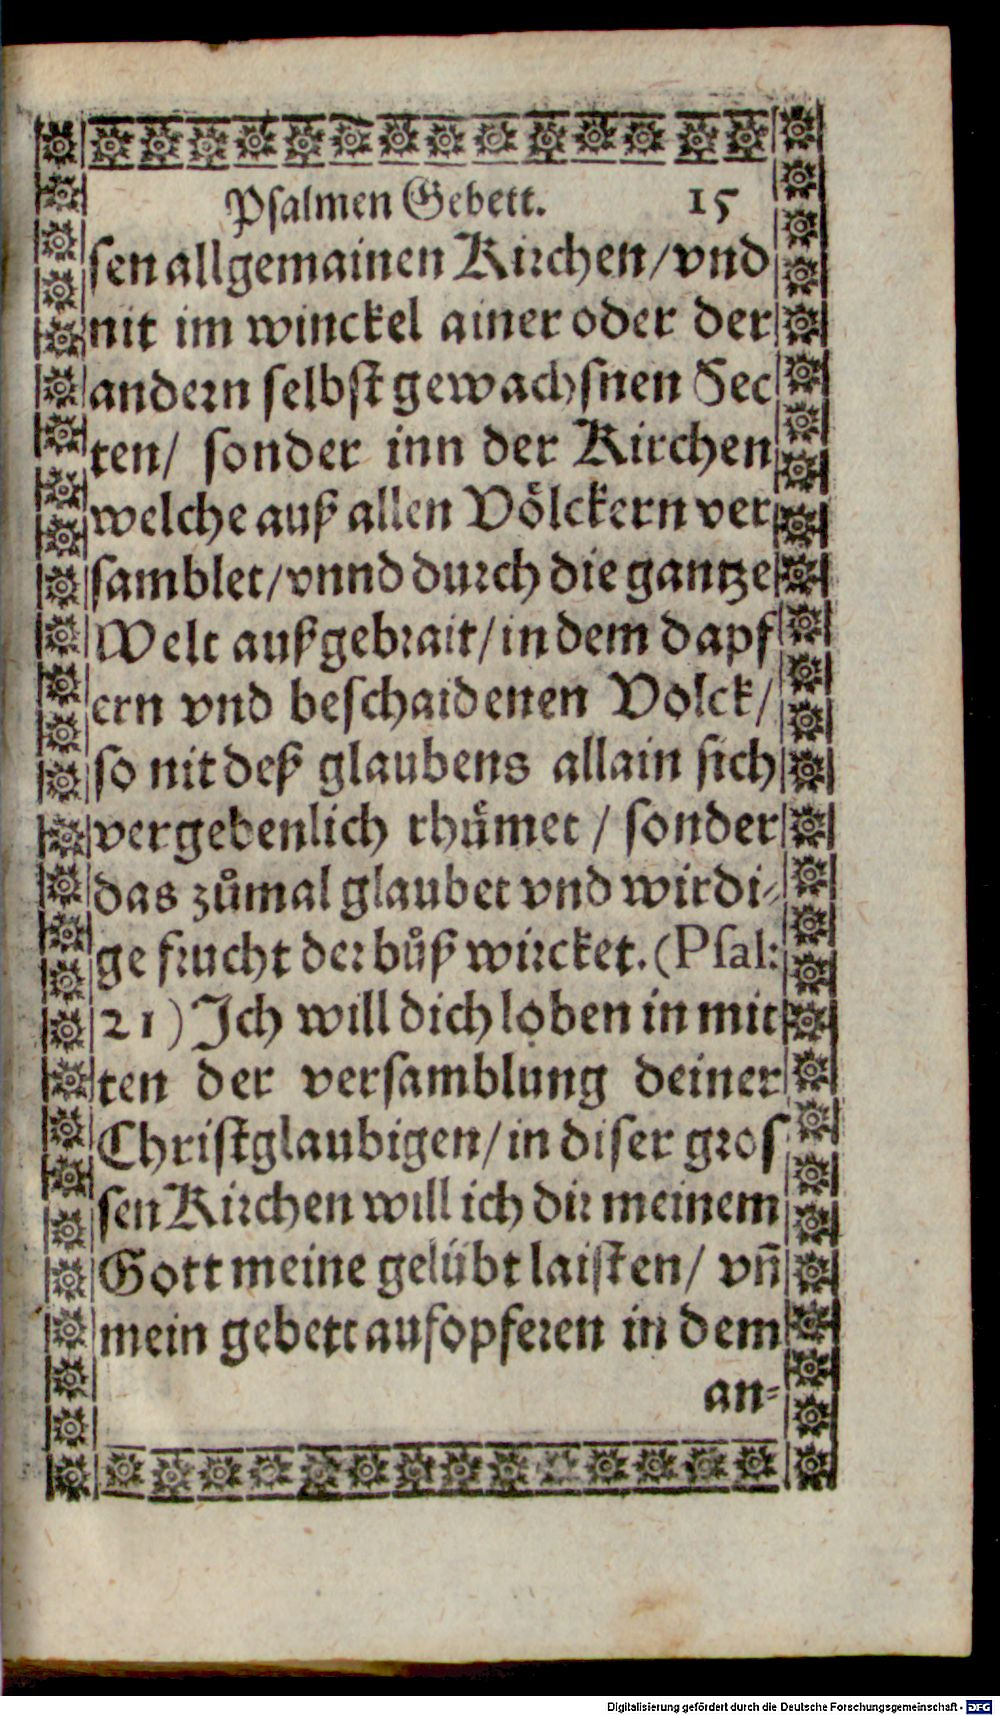 Psalmen Gebett. 15
sen allgemainen Kirchen/vnd
nit im winckel ainer oder der
andern selbst gewachsnen Sec
ten/ sonder inn der Kirchen
welche auß allen Völckern ver
samblet/vnnd durch die gantze
Welt außgebrait/in dem dapf
ern vnd beschaidenen Volck/
so nit deß glaubens allain sich
vergebenlich rhuͤmet / sonder
das zůmal glaubet vnd wirdi-
ge frucht der bůß wircket. (Psal:
21) Ich will dich loben in mit
ten der versamblung deiner
Christglaubigen/in diser gros
sen Kirchen will ich dir meinem
Gott meine gelübt laisten/ vn̄
mein gebett aufopferen in dem
an-
Digitalisierung gefördert durch die Deutsche Forschungsgemeinschaft - DFG